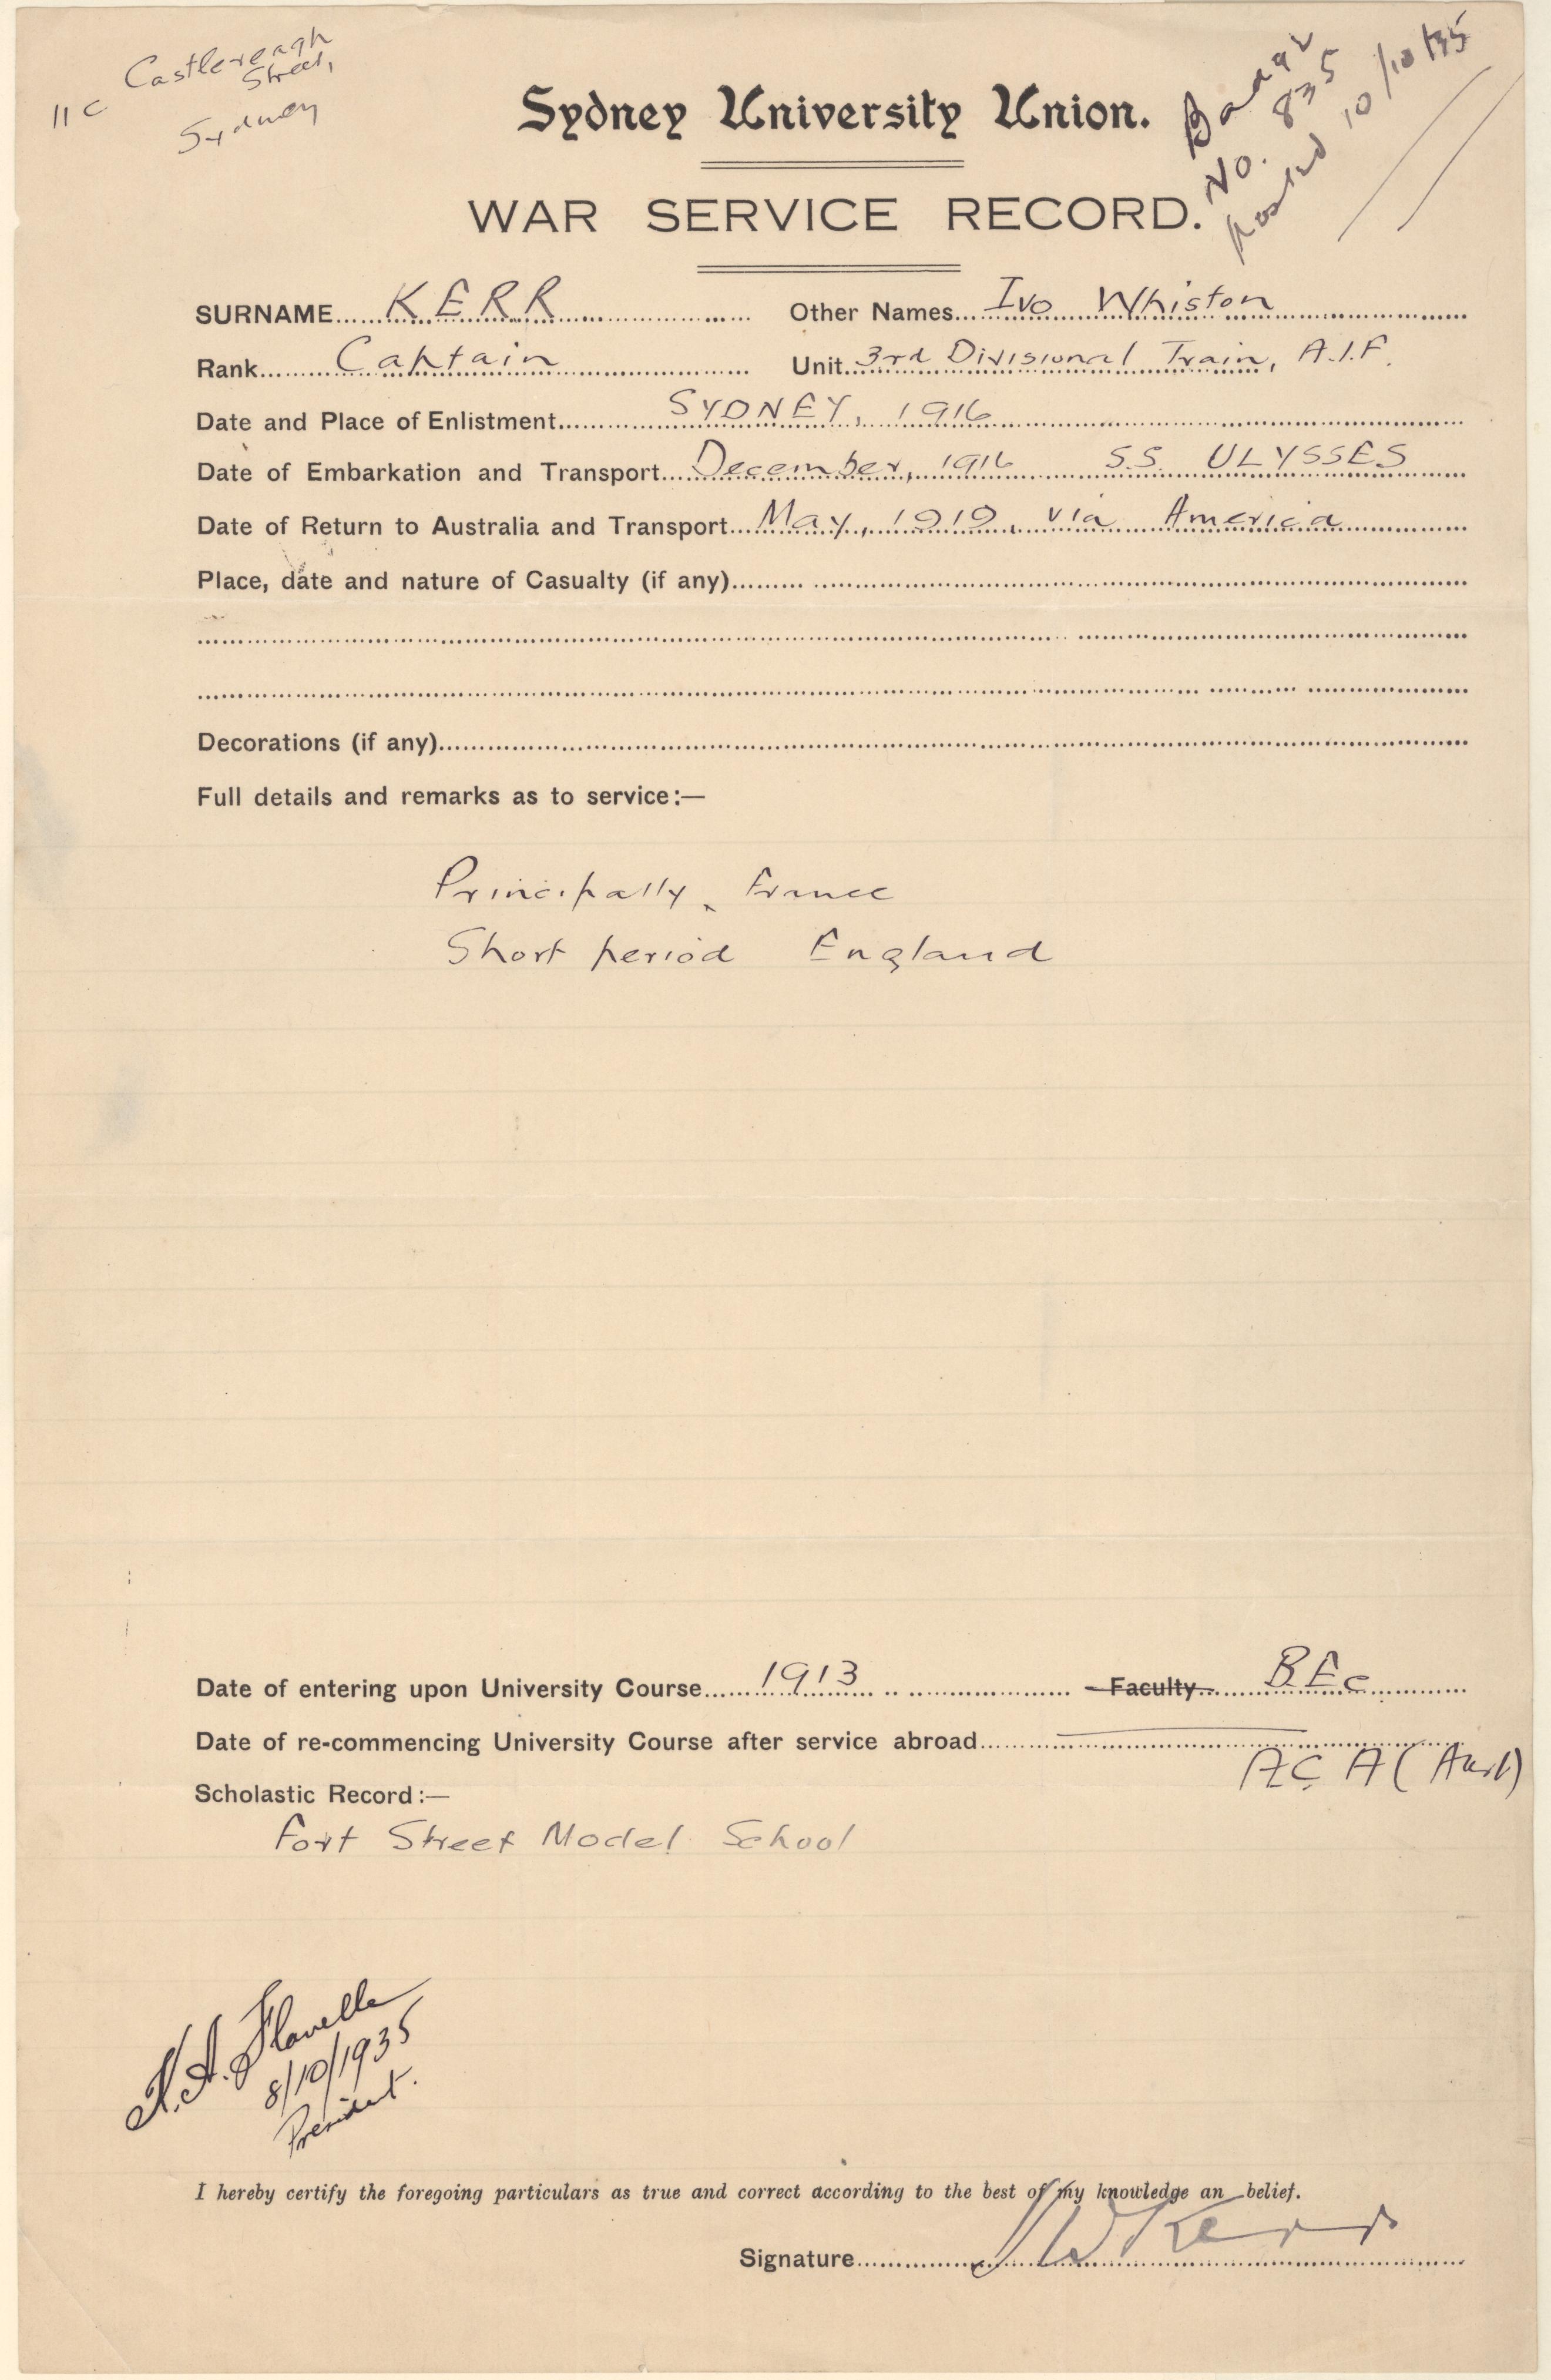 11c Castlereagh
Street,
Sydney
Badge
No. 835
Posted 10/10/35
Sydney University Union.
WAR SERVICE RECORD.
SURNAME KERR Other Names Ivo Whiston
Rank Captain Unit 3rd Divisional Train, A.I.F.
Date and Place of Enlistment SYDNEY, 1916
Date of Embarkation and Transport December, 1916 S.S. ULYSSES
Date of Return to Australia and Transport May, 1919, via America
Place, date and nature of Casualty (if any)
Decorations (if any)
Full details and remarks as to service:—
Principally, France
Short period England
Date of entering upon University Course 1913 Faculty BEc
Date of re-commencing University Course after service abroad
ACA (Aust)
Scholastic Record:—
Fort Street Model School
K.A. Flavelle
8/10/1935
President.
I hereby certify the foregoing particulars as true and correct according to the best of my knowledge an belief.
Signature IWKerr